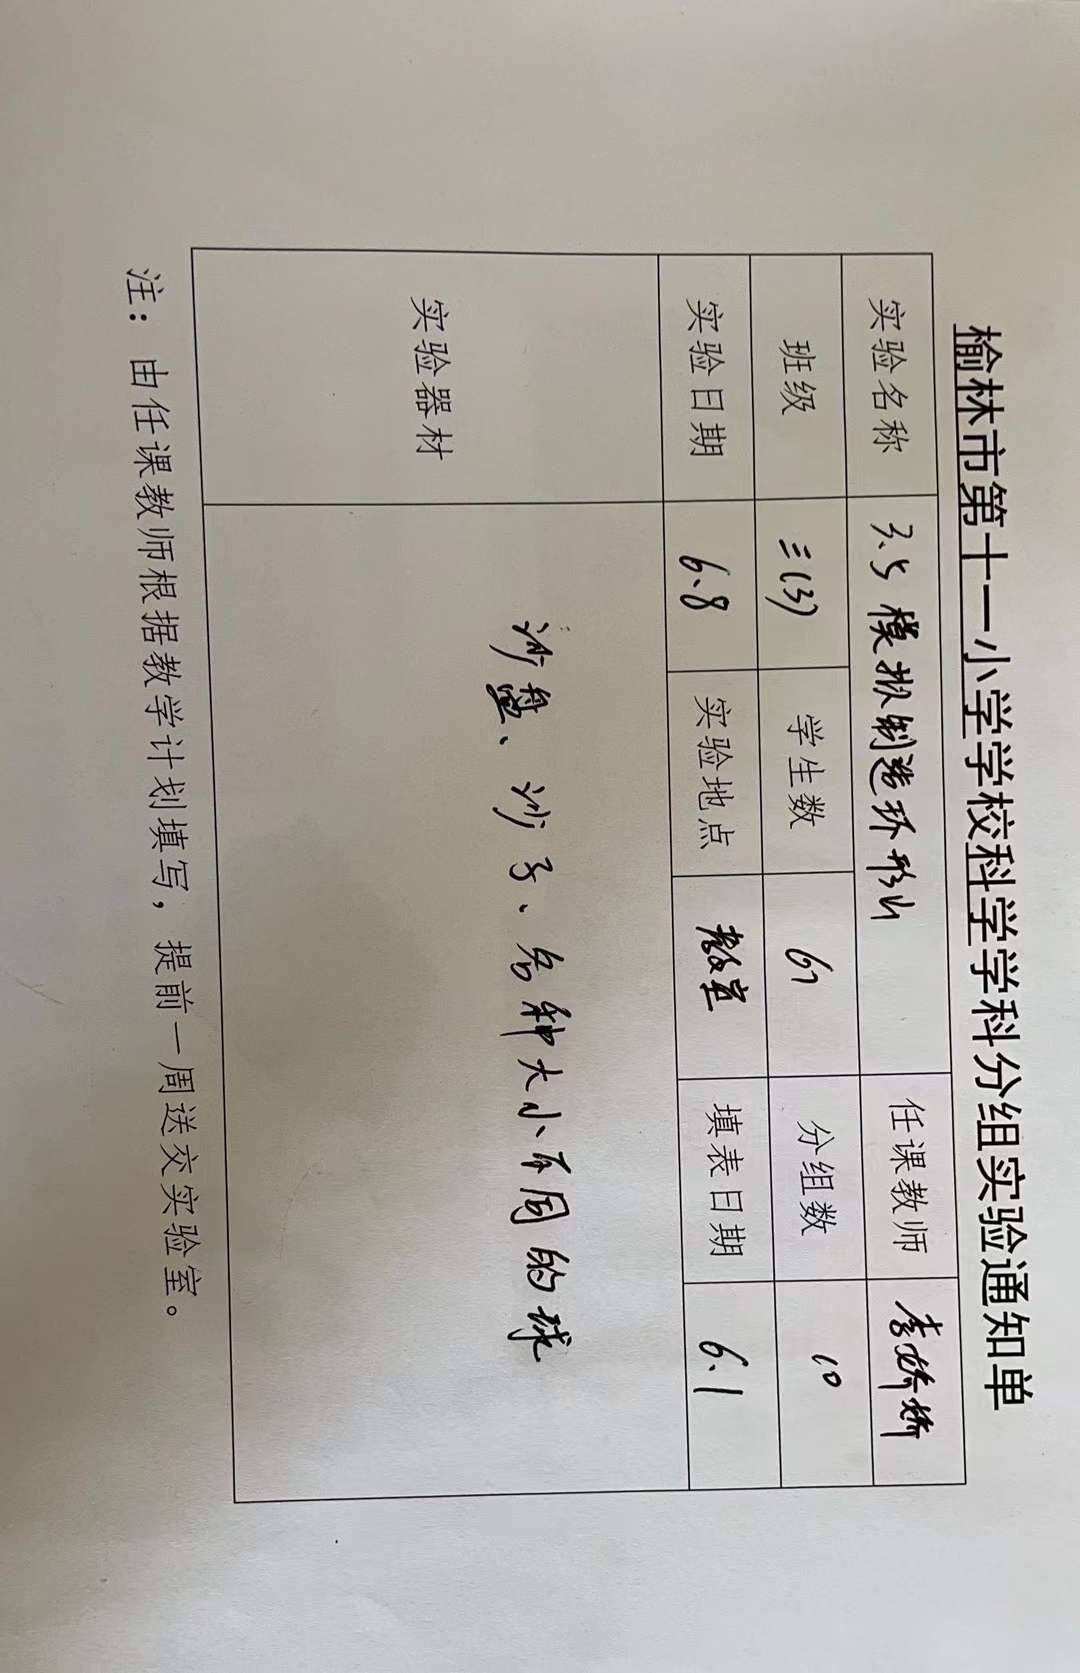 榆林市第十一小学学校科学学科分组实验通知单
实验名称 3.5 模拟制造环形山 任课教师 李娇娇
班级 三(3) 学生数 67 分组数 10
实验日期 6.8 实验地点 教室 填表日期 6.1
实验器材 沙盘、沙子、各种大小不同的球
注：由任课教师根据教学计划填写，提前一周送交实验室。